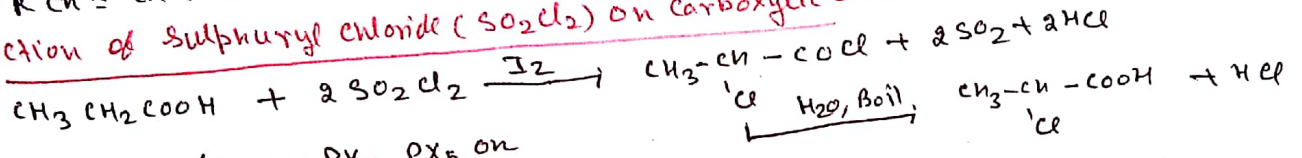 ction of Sulphuryl Chloride (SO2Cl2) on
CH3 CH2 COOH + 2 SO2Cl2 I2 → CH3-CH-COCl + 2SO2 + 2HCl
'Cl H2O, Boil, CH3-CH-COOH + HCl
'Cl
PX5 on